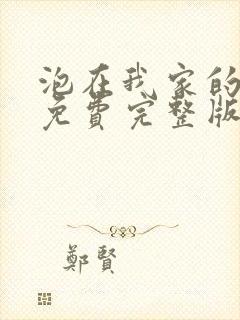 泡在我家的
免費完整版
鄭賢